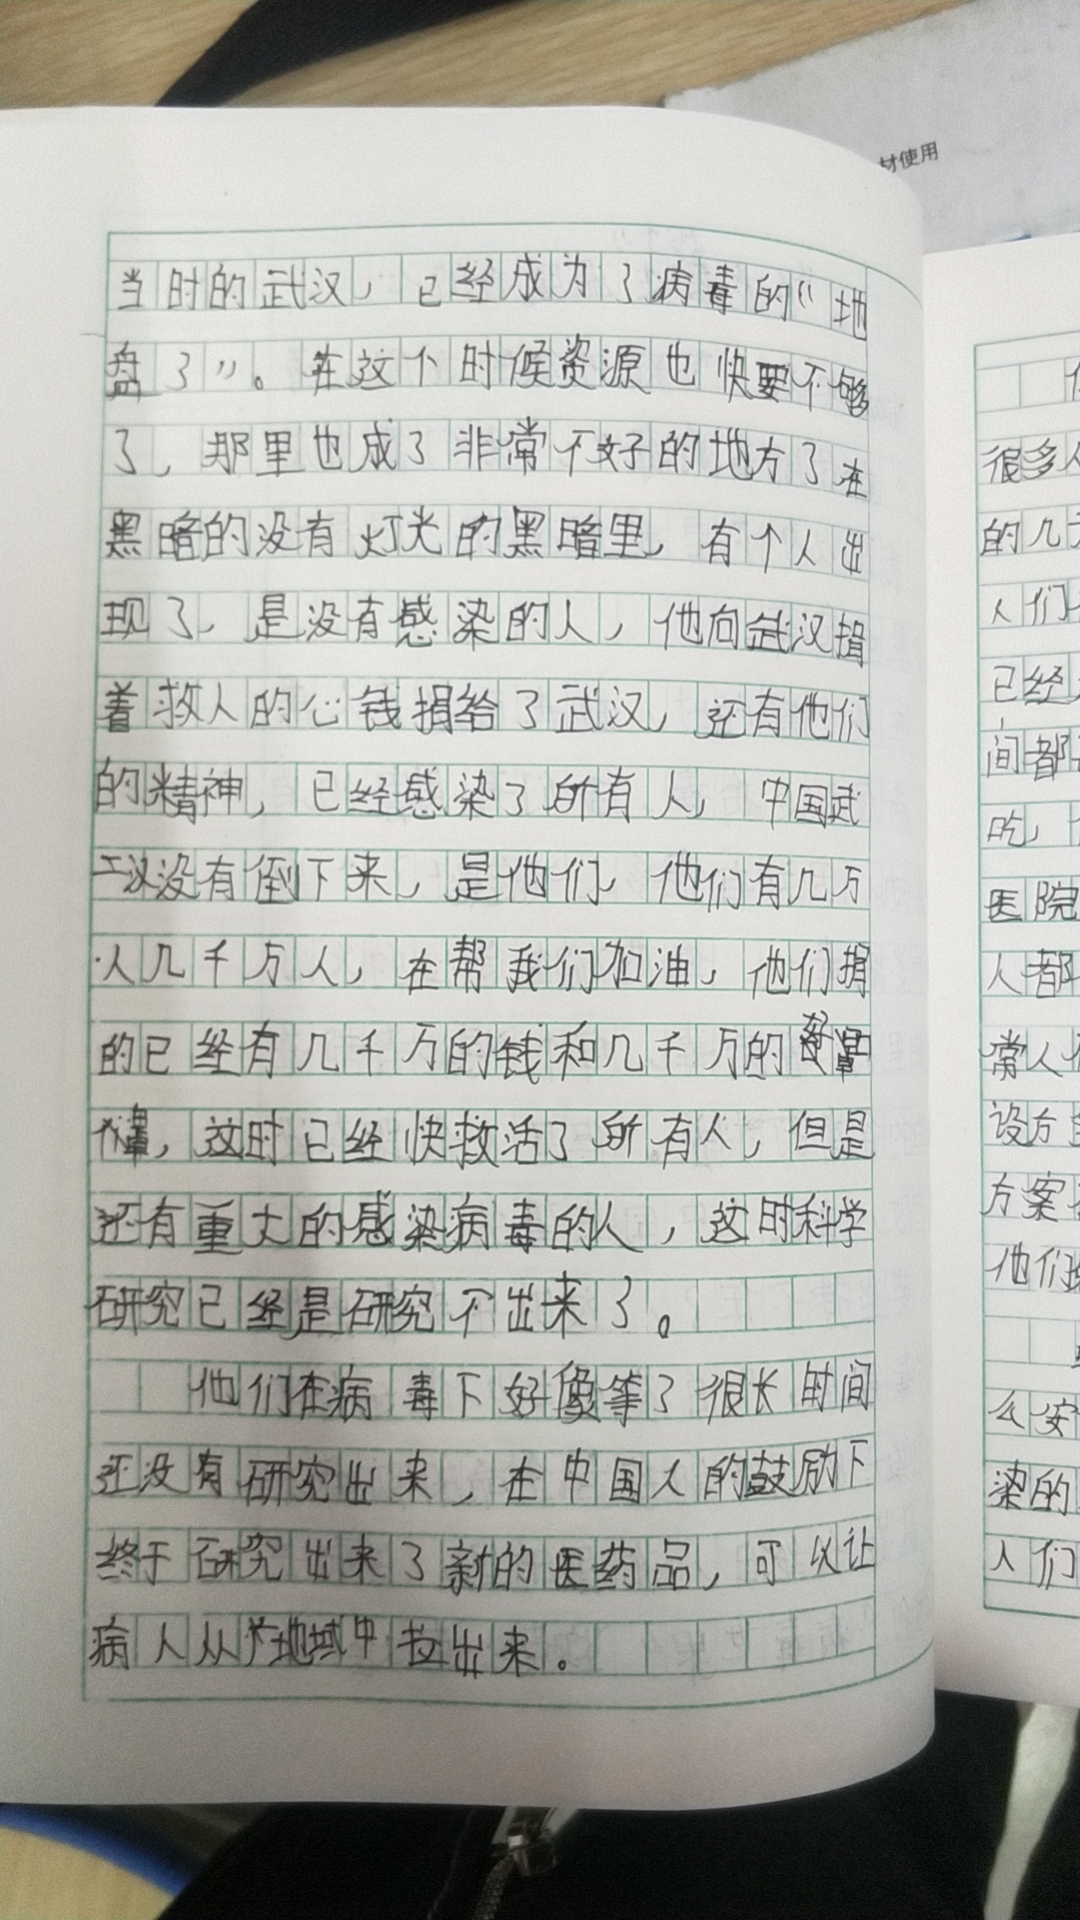 材使用
当时的武汉，已经成为了病毒的“地
盘了”。在这个时候资源也快要不够
了，那里也成了非常不好的地方了在
黑暗的没有灯光的黑暗里，有个人出
现了，是没有感染的人，他向武汉捐
着救人的心钱捐给了武汉，还有他们
的精神，已经感染了所有人，中国武
汉没有倒下来，是他们，他们有几万
人几千万人，在帮我们加油，他们捐
的已经有几千万的钱和几千万的
，这时已经快救活了所有人，但是
还有重大的感染病毒的人，这时科学
研究已经是研究不出来了。
他们在病毒下好像等了很长时间
还没有研究出来，在中国人的鼓励下
终于研究出来了新的医药品，可以让
病人从地域中拉出来。
很多人
的几天
人们
已经
间都
吃，
医院
人都
常人
设方
方案
他们
么安
染的
人们